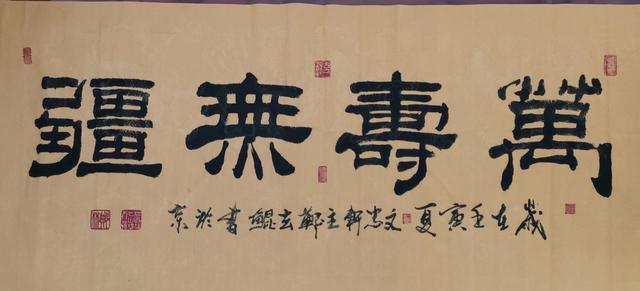 萬壽無疆
歲在壬寅夏文岩軒主鄭玄鯤書於京